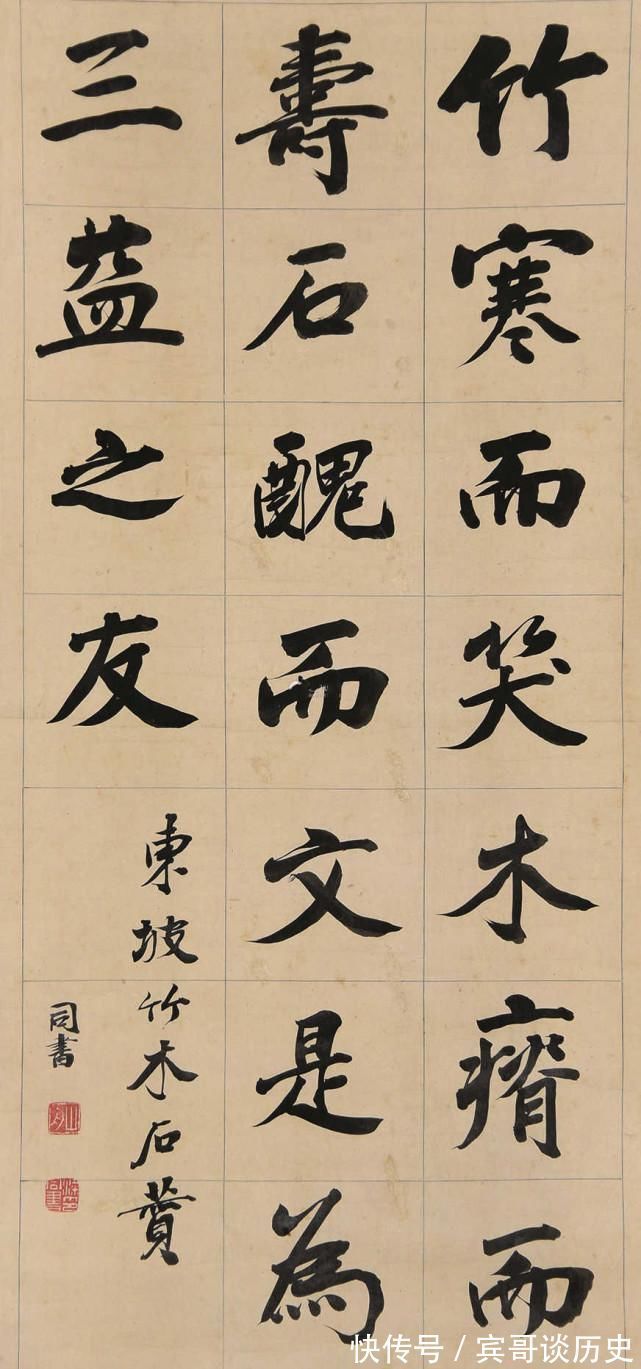 竹寒而笑木瘠而
壽石醜而文是為
三益之友
東坡竹木石贊
同書
快传号 / 宾哥谈历史